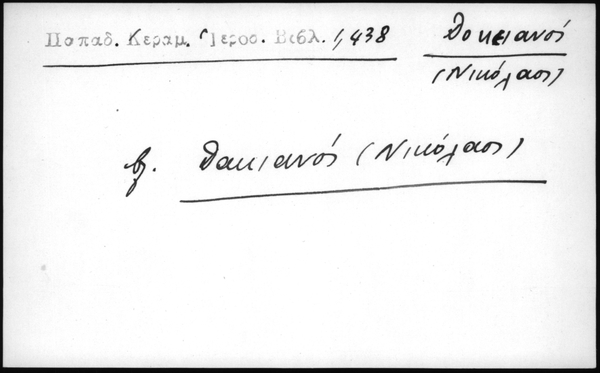 Παπαδ. Κεραμ. Ἱεροσ. Βιβλ. 1,438
Θοκιανός
(Νικόλαος)
βλ. Θακιανός (Νικόλαος)